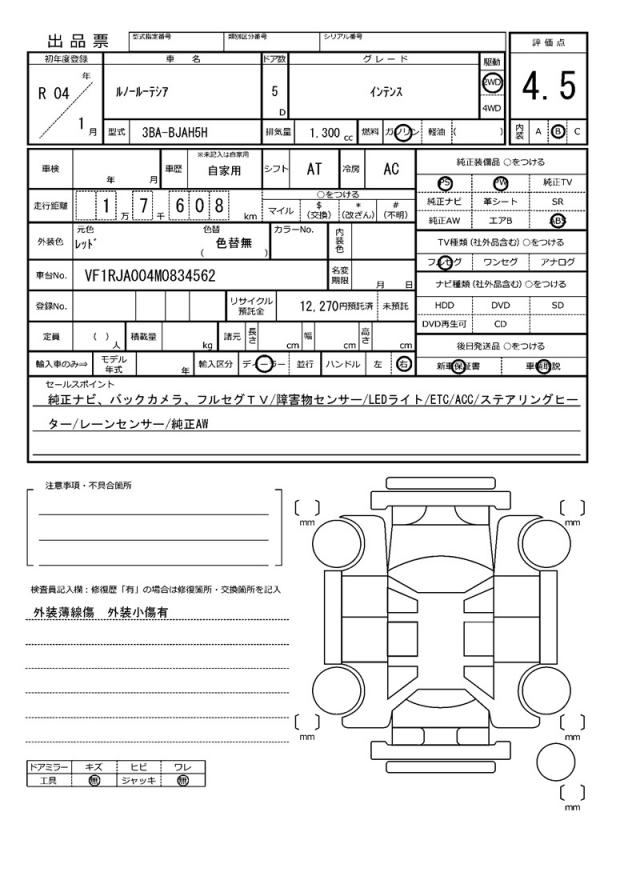 出品票 型式指定番号 類別区分番号 シリアル番号 評価点
初年度登録 車名 ドア数 グレード 駆動
R 04 年 ルノールーテシア 5 D インテンス 2WD 4WD 4.5
1 月 型式 3BA-BJAH5H 排気量 1.300 cc 燃料 ガソリン 軽油 ( ) 内装 A B C
車検 年 月 車歴 ※未記入は自家用 自家用 シフト AT 冷房 AC 純正装備品 ○をつける
PS PW 純正TV
走行距離 1 万 7 千 6 0 8 km ○をつける 純正ナビ 革シート SR
マイル $ (交換) * (改ざん) # (不明) 純正AW エアB ABS
外装色 元色 レッド 色替 色替無 ( ) カラーNo. 内装色 TV種類 (社外品含む) ○をつける
フルセグ ワンセグ アナログ
車台No. VF1RJA004M0834562 名変期限 月 日 ナビ種類 (社外品含む) ○をつける
登録No. リサイクル預託金 12,270円預託済 未預託 HDD DVD SD
DVD再生可 CD
定員 ( ) 人 積載量 kg 諸元 長さ cm 幅 cm 高さ cm 後日発送品 ○をつける
輸入車のみ⇒ モデル年式 年 輸入区分 ディーラー 並行 ハンドル 左 右 新車保証書 車輌取説
セールスポイント
純正ナビ、バックカメラ、フルセグＴＶ/障害物センサー/LEDライト/ETC/ACC/ステアリングヒー
ター/レーンセンサー/純正AW
注意事項・不具合箇所
mm mm
検査員記入欄：修復歴「有」の場合は修復箇所・交換箇所を記入
外装薄線傷 外装小傷有
mm mm
ドアミラー キズ ヒビ ワレ
工具 無 ジャッキ 無
mm